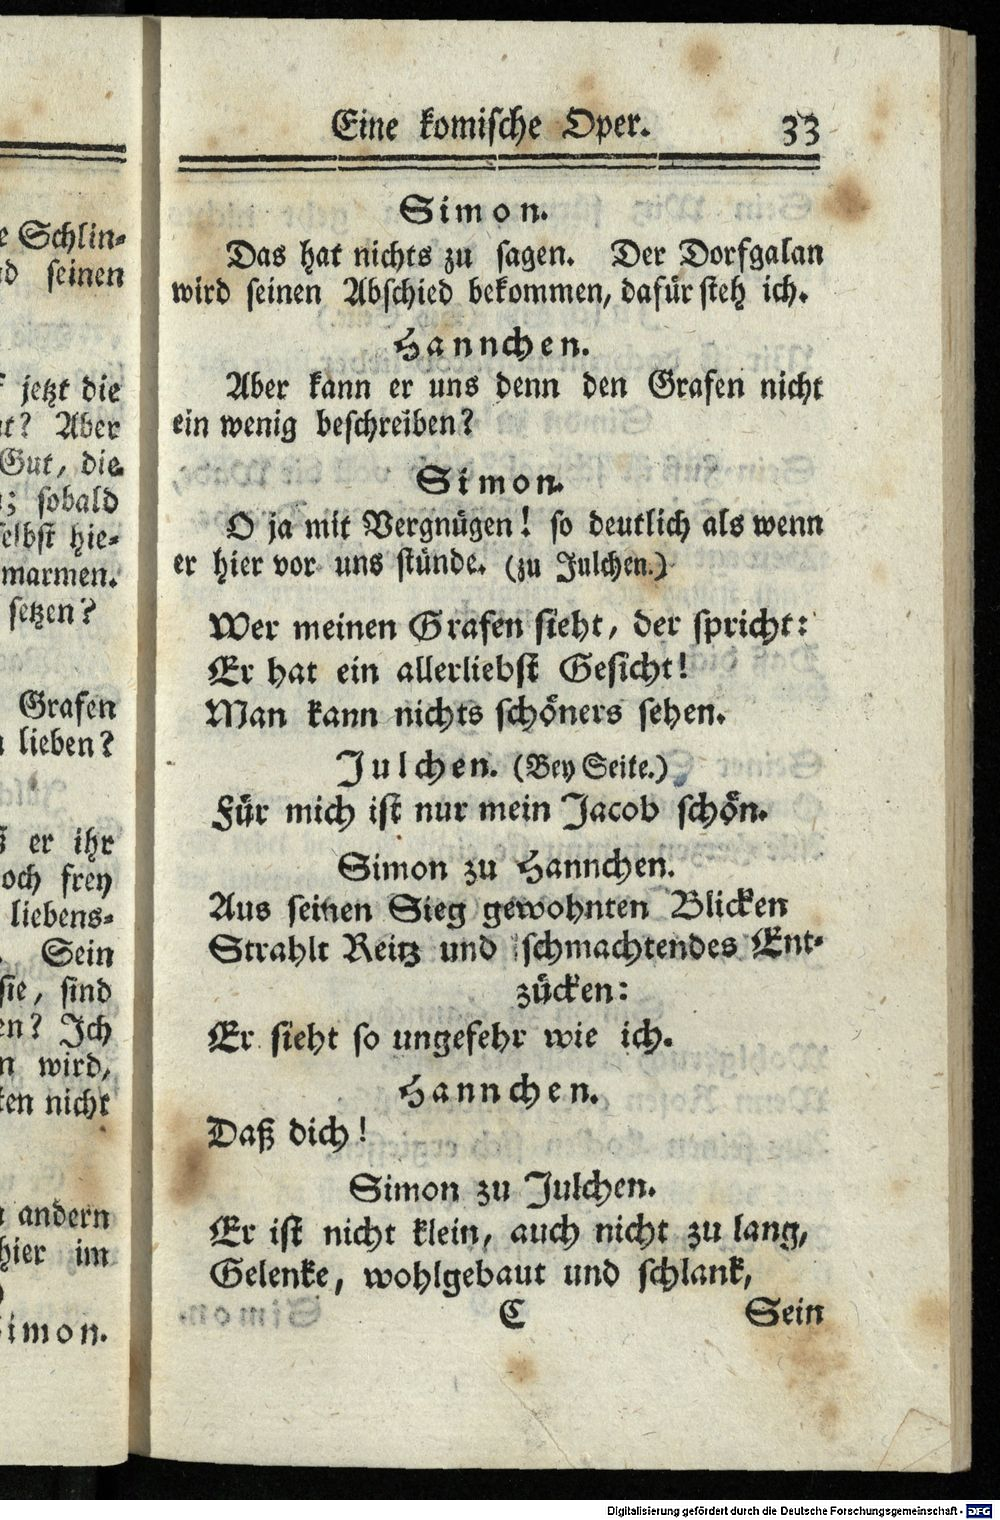 e Schlin-
d seinen
jetzt die
t? Aber
Gut, die
; sobald
selbst hie-
marmen.
setzen?
Grafen
lieben?
er ihr
och frey
liebens-
Sein
sie, sind
en? Ich
n wird,
ten nicht
andern
hier im
imon.
Eine komische Oper. 33
Simon.
Das hat nichts zu sagen. Der Dorfgalan
wird seinen Abschied bekommen, dafür steh ich.
Hannchen.
Aber kann er uns denn den Grafen nicht
ein wenig beschreiben?
Simon.
O ja mit Vergnügen! so deutlich als wenn
er hier vor uns stünde. (zu Julchen.)
Wer meinen Grafen sieht, der spricht:
Er hat ein allerliebst Gesicht!
Man kann nichts schöners sehen.
Julchen. (Bey Seite.)
Für mich ist nur mein Jacob schön.
Simon zu Hannchen.
Aus seinen Sieg gewohnten Blicken
Strahlt Reitz und schmachtendes Ent-
zücken:
Er sieht so ungefehr wie ich.
Hannchen.
Daß dich!
Simon zu Julchen.
Er ist nicht klein, auch nicht zu lang,
Gelenke, wohlgebaut und schlank,
C Sein
Digitalisierung gefördert durch die Deutsche Forschungsgemeinschaft - DFG